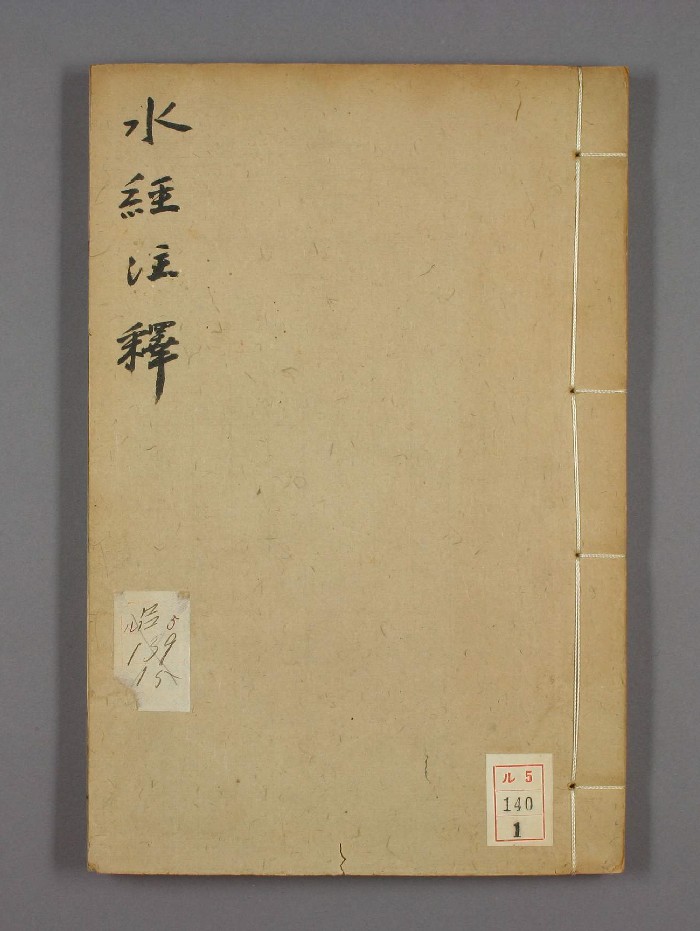 水經注釋
ル 5
140
1
5
139
15